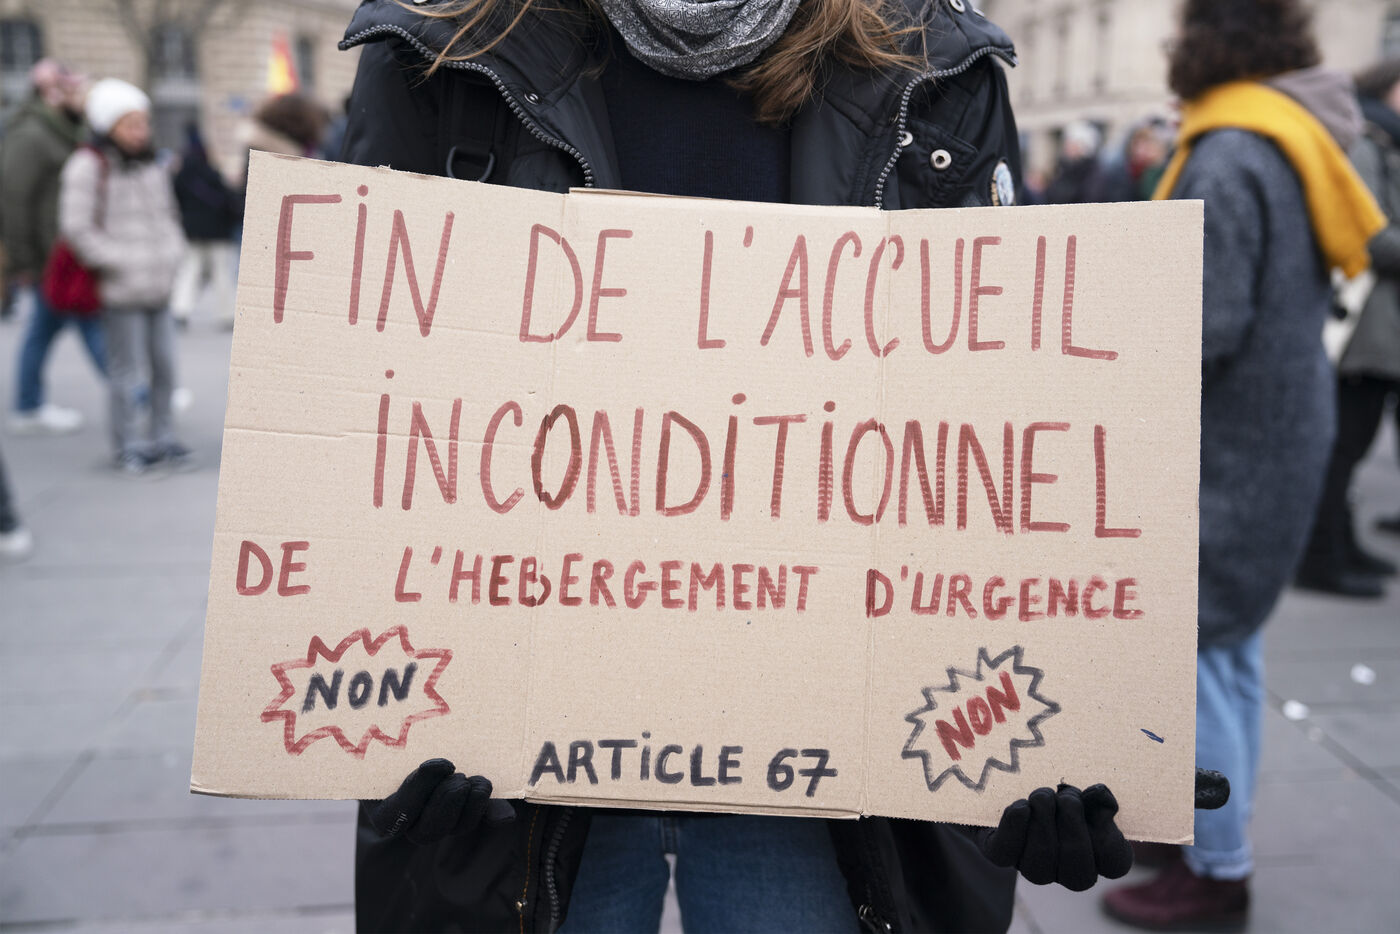 FIN DE L'ACCUEIL
INCONDITIONNEL
DE L'HEBERGEMENT D'URGENCE
NON
NON
ARTICLE 67